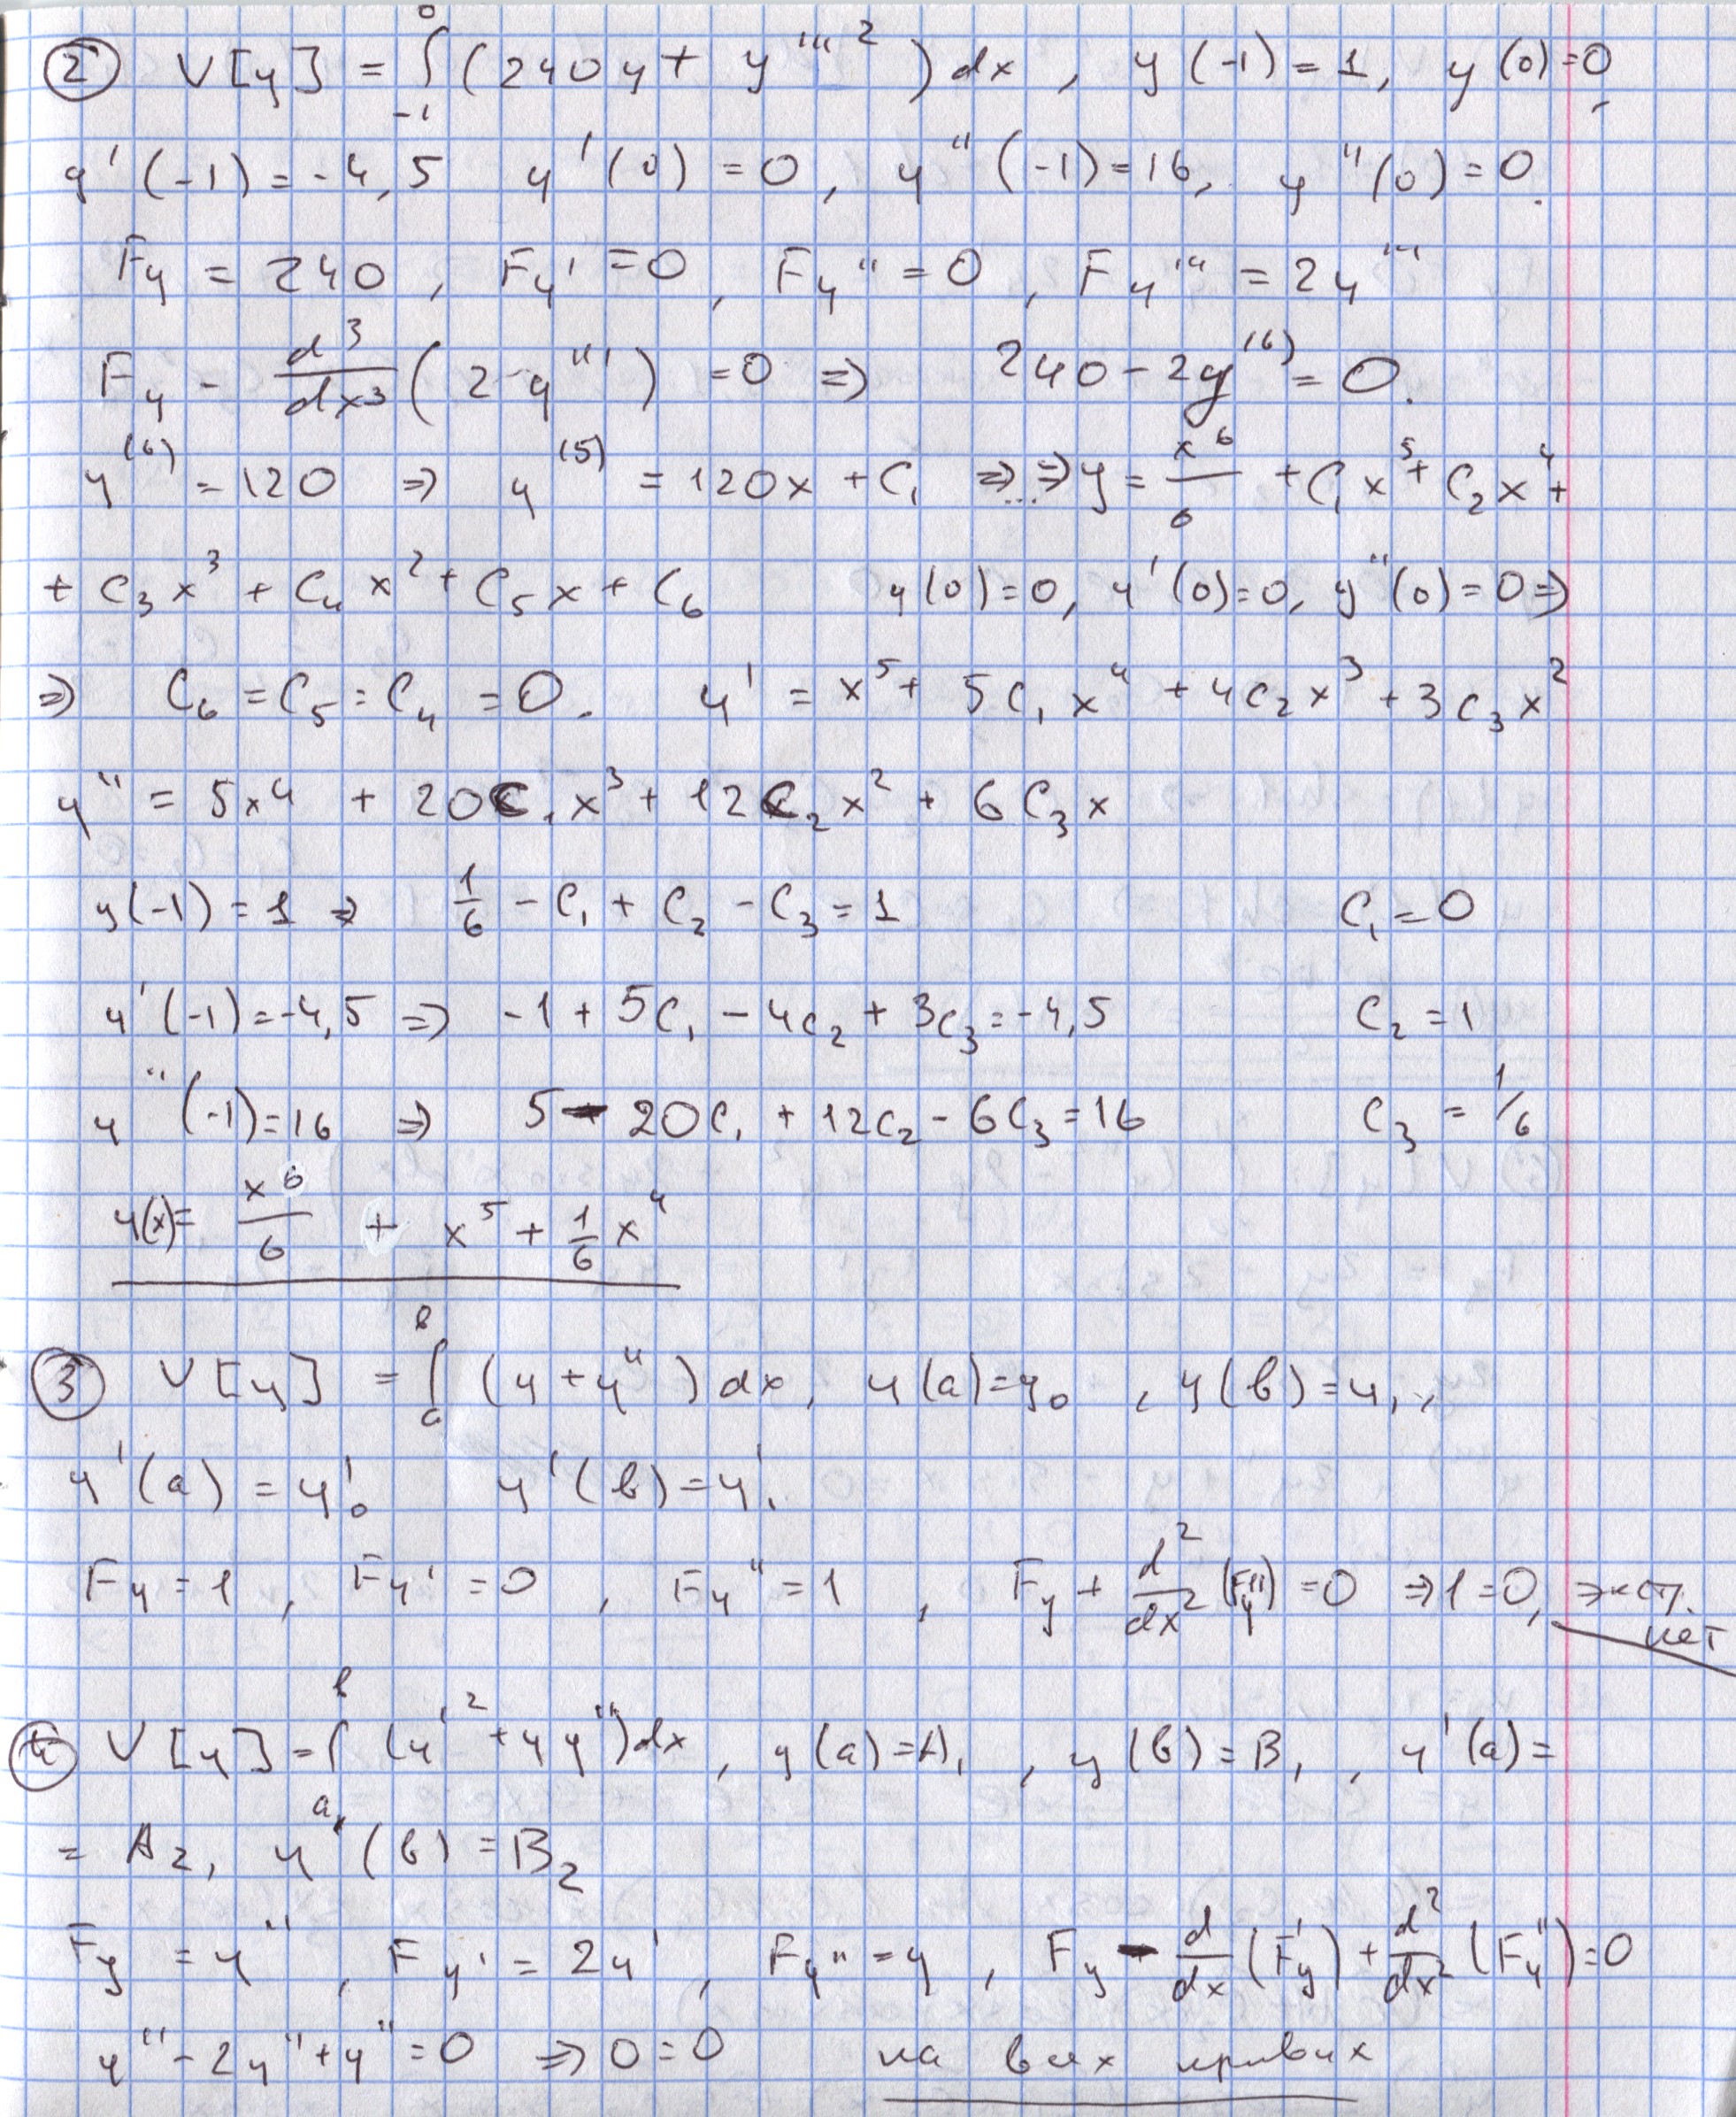 ② V[y] = ∫₋₁⁰ (240y + y'''²) dx, y(-1) = 1, y(0) = 0,
y'(-1) = -4,5 y'(0) = 0, y''(-1) = 16, y''(0) = 0.
F_y = 240, F_y' = 0, F_y'' = 0, F_y''' = 2y'''
F_y - d³/dx³ (2y''') = 0 ⇒ 240 - 2y⁽⁶⁾ = 0.
y⁽⁶⁾ = 120 ⇒ y⁽⁵⁾ = 120x + C₁ ⇒...⇒ y = x⁶/6 + C₁x⁵ + C₂x⁴ +
+ C₃x³ + C₄x² + C₅x + C₆ y(0) = 0, y'(0) = 0, y''(0) = 0 ⇒
⇒ C₆ = C₅ = C₄ = 0. y' = x⁵ + 5C₁x⁴ + 4C₂x³ + 3C₃x²
y'' = 5x⁴ + 20C₁x³ + 12C₂x² + 6C₃x
y(-1) = 1 ⇒ 1/6 - C₁ + C₂ - C₃ = 1 C₁ = 0
y'(-1) = -4,5 ⇒ -1 + 5C₁ - 4C₂ + 3C₃ = -4,5 C₂ = 1
y''(-1) = 16 ⇒ 5 - 20C₁ + 12C₂ - 6C₃ = 16 C₃ = 1/6
y(x) = x⁶/6 + x⁵ + 1/6 x⁴
③ V[y] = ∫ₐᵇ (y + y'') dx, y(a) = y₀, y(b) = y₁,
y'(a) = y'₀ y'(b) = y'₁
F_y = 1, F_y' = 0, F_y'' = 1, F_y + d²/dx² (F_y'') = 0 ⇒ 1 = 0, экст. нет
④ V[y] = ∫ₐᵇ (y'² + yy'') dx, y(a) = A₁, y(b) = B₁, y'(a) =
= A₂, y'(b) = B₂
F_y = y'', F_y' = 2y', F_y'' = y, F_y - d/dx (F_y') + d²/dx² (F_y'') = 0
y'' - 2y'' + y'' = 0 ⇒ 0 = 0 на всех кривых